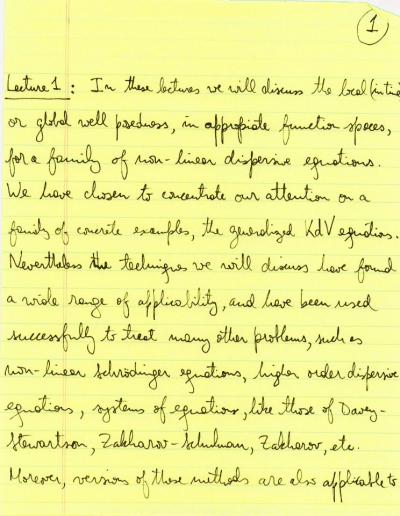 1
Lecture 1: In these lectures we will discuss the local (in time
or global well posedness, in appropiate function spaces,
for a family of non-linear dispersive equations.
We have chosen to concentrate our attention on a
family of concrete examples, the generalized KdV equations.
Nevertheless the techniques we will discuss have found
a wide range of applicability, and have been used
successfully to treat many other problems, such as
non-linear Schrödinger equations, higher order dispersive
equations, systems of equations, like those of Davey-
Stewartson, Zakharov-Schulman, Zakharov, etc.
Moreover, versions of these methods are also applicable to